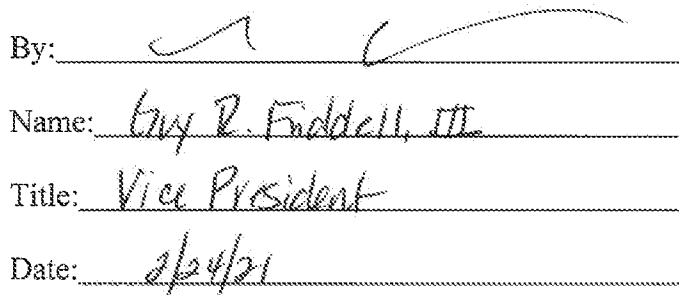 By:
Name: Guy R. Friddell, III
Title: Vice President
Date: 2/24/21